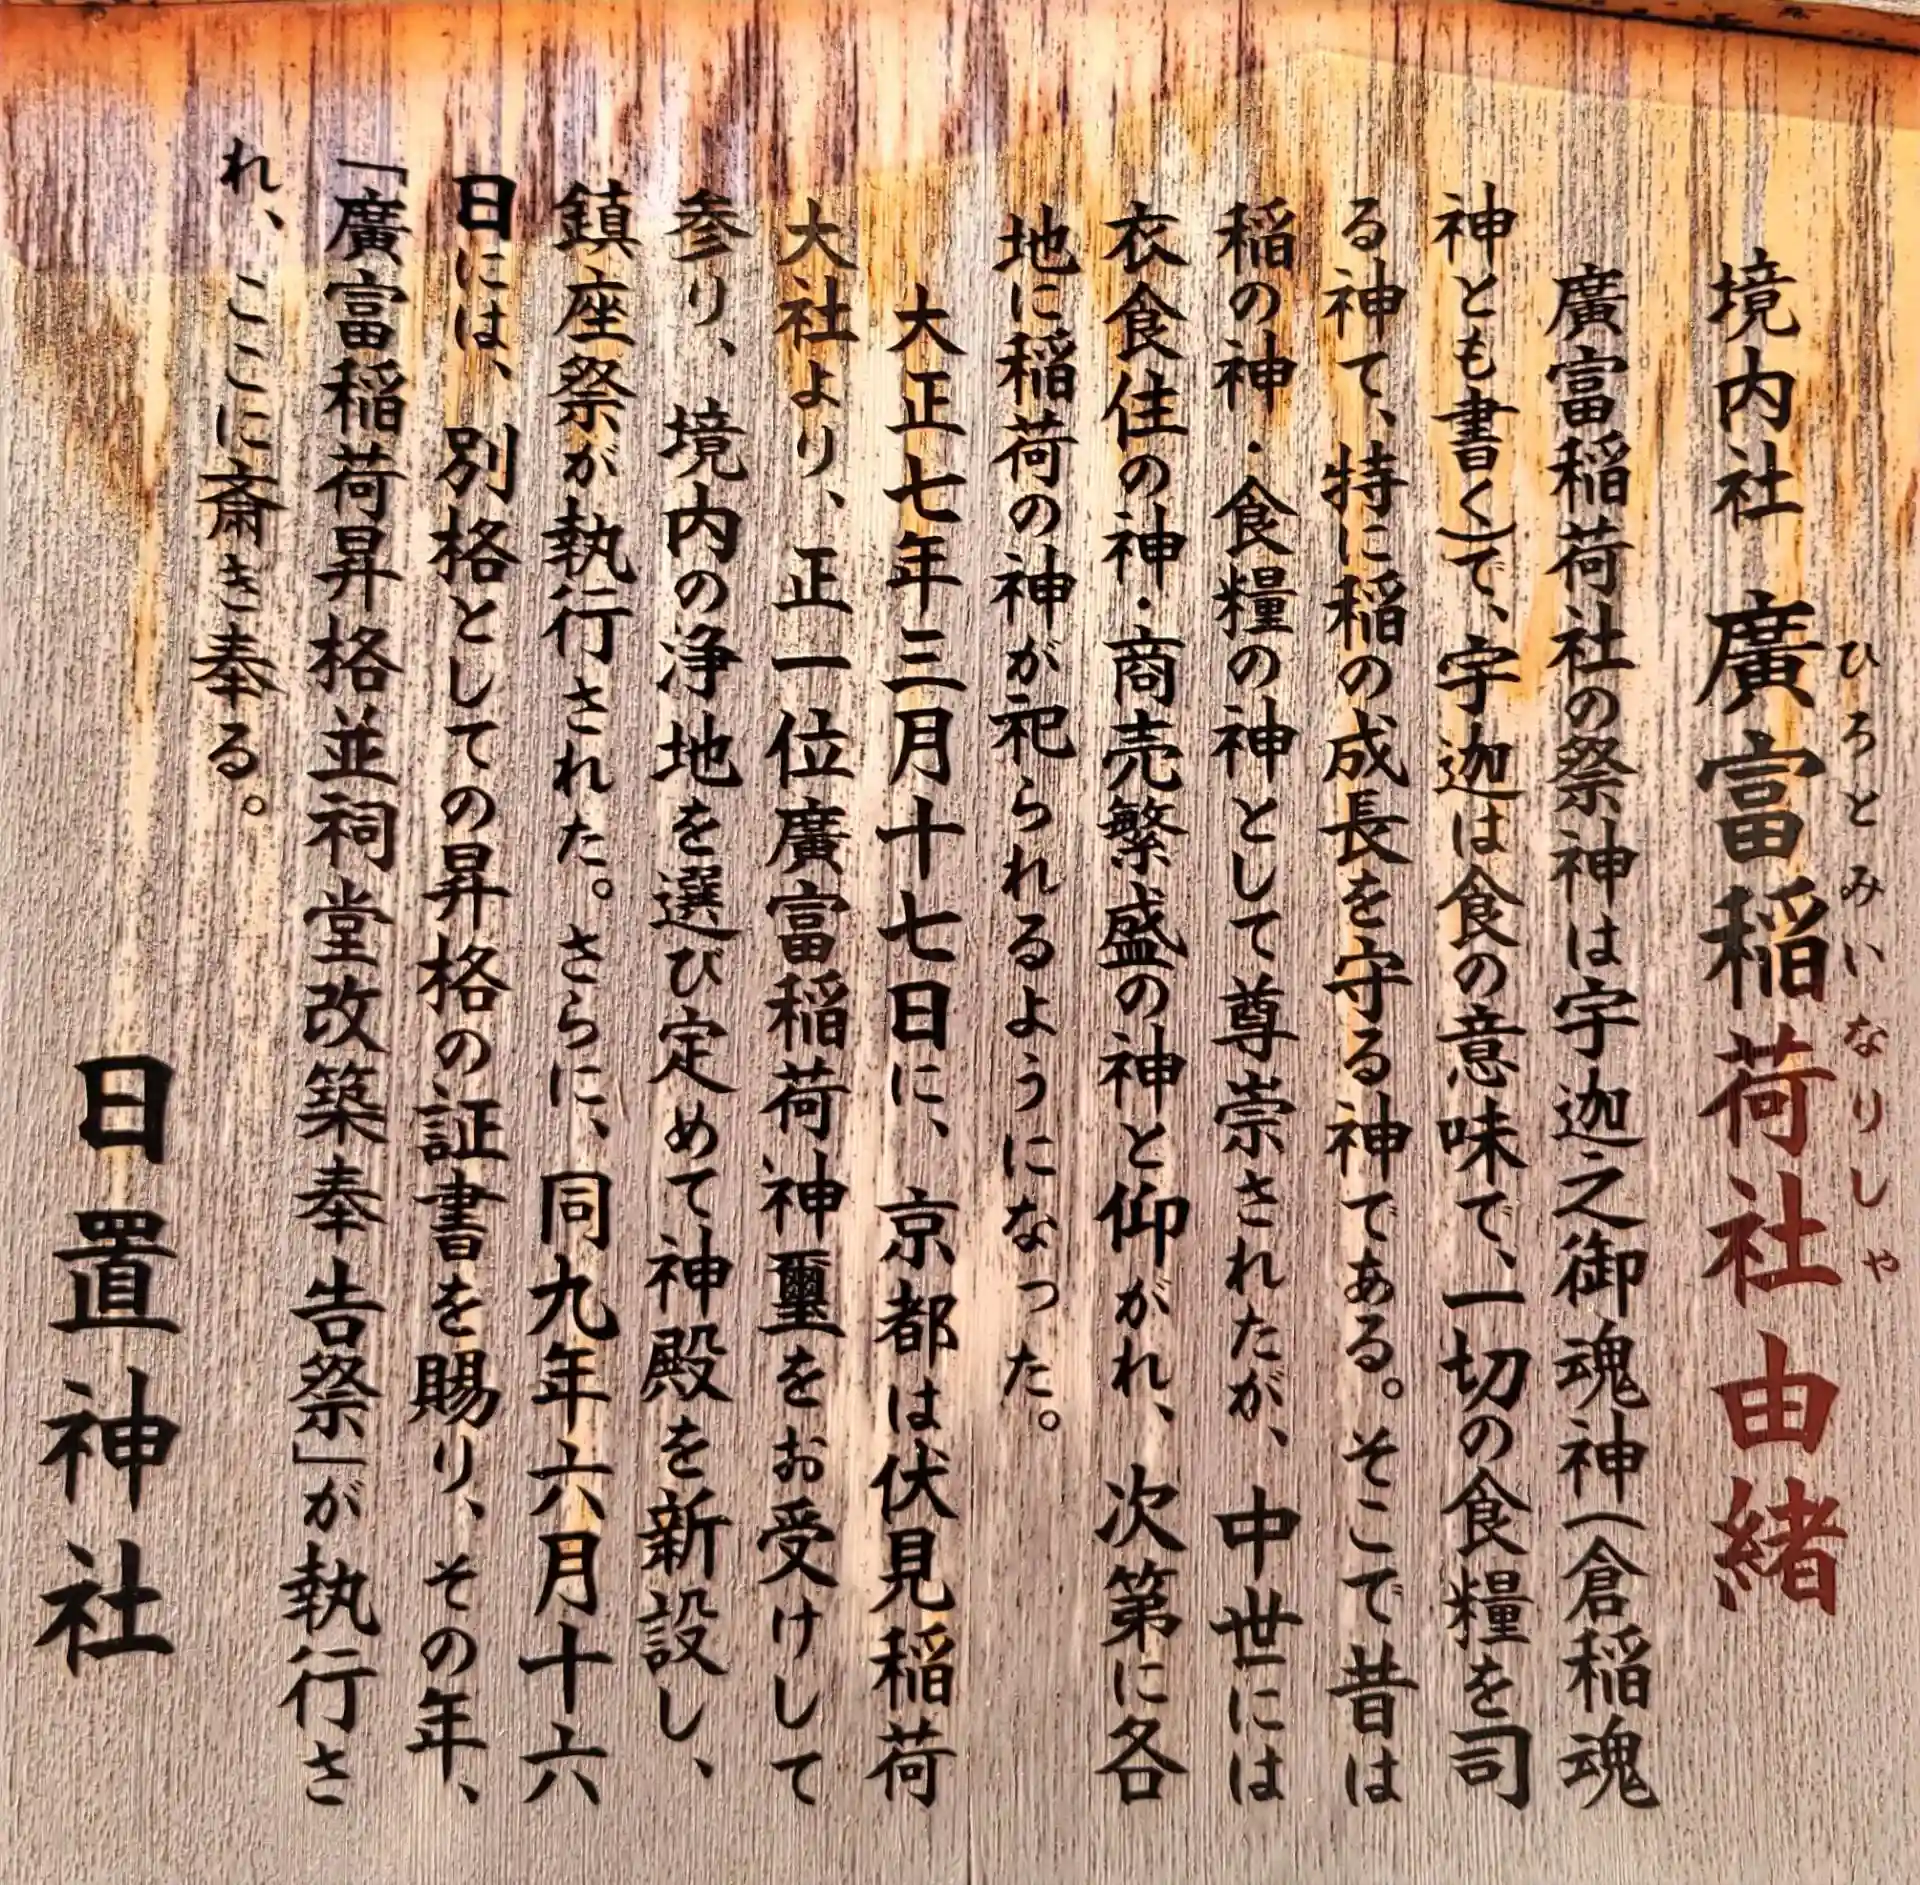 境内社 廣富稲荷社由緒
ひろとみいなりしゃ
廣富稲荷社の祭神は宇迦之御魂神(倉稲魂
神とも書く)で、宇迦は食の意味で、一切の食糧を司
る神て、特に稲の成長を守る神である。そこで昔は
稲の神・食糧の神として尊崇されたが、中世には
衣食住の神・商売繁盛の神と仰がれ、次第に各
地に稲荷の神が祀られるようになった。
大正七年三月十七日に、京都は伏見稲荷
大社より、正一位廣富稲荷神璽をお受けして
参り、境内の浄地を選び定めて神殿を新設し、
鎮座祭が執行された。さらに、同九年六月十六
日には、別格としての昇格の証書を賜り、その年、
「廣富稲荷昇格並祠堂改築奉告祭」が執行さ
れ、ここに斎き奉る。
日置神社